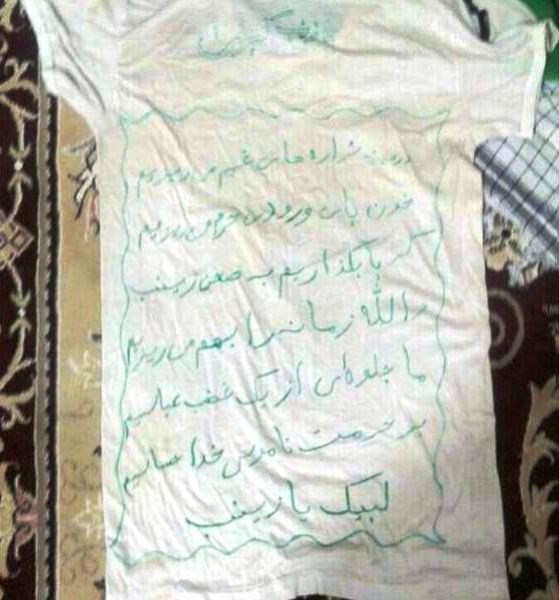 در سینه شراره های غم می ریزیم
خون پای ورودی حرم می ریزیم
گر پا بگذاریم به صحن زینب
والله زمانه را بهم می ریزیم
ما جلوه ای از یک غضب عباسیم
بر حرمت ناموس خدا حساسیم
لبیک یا زینب